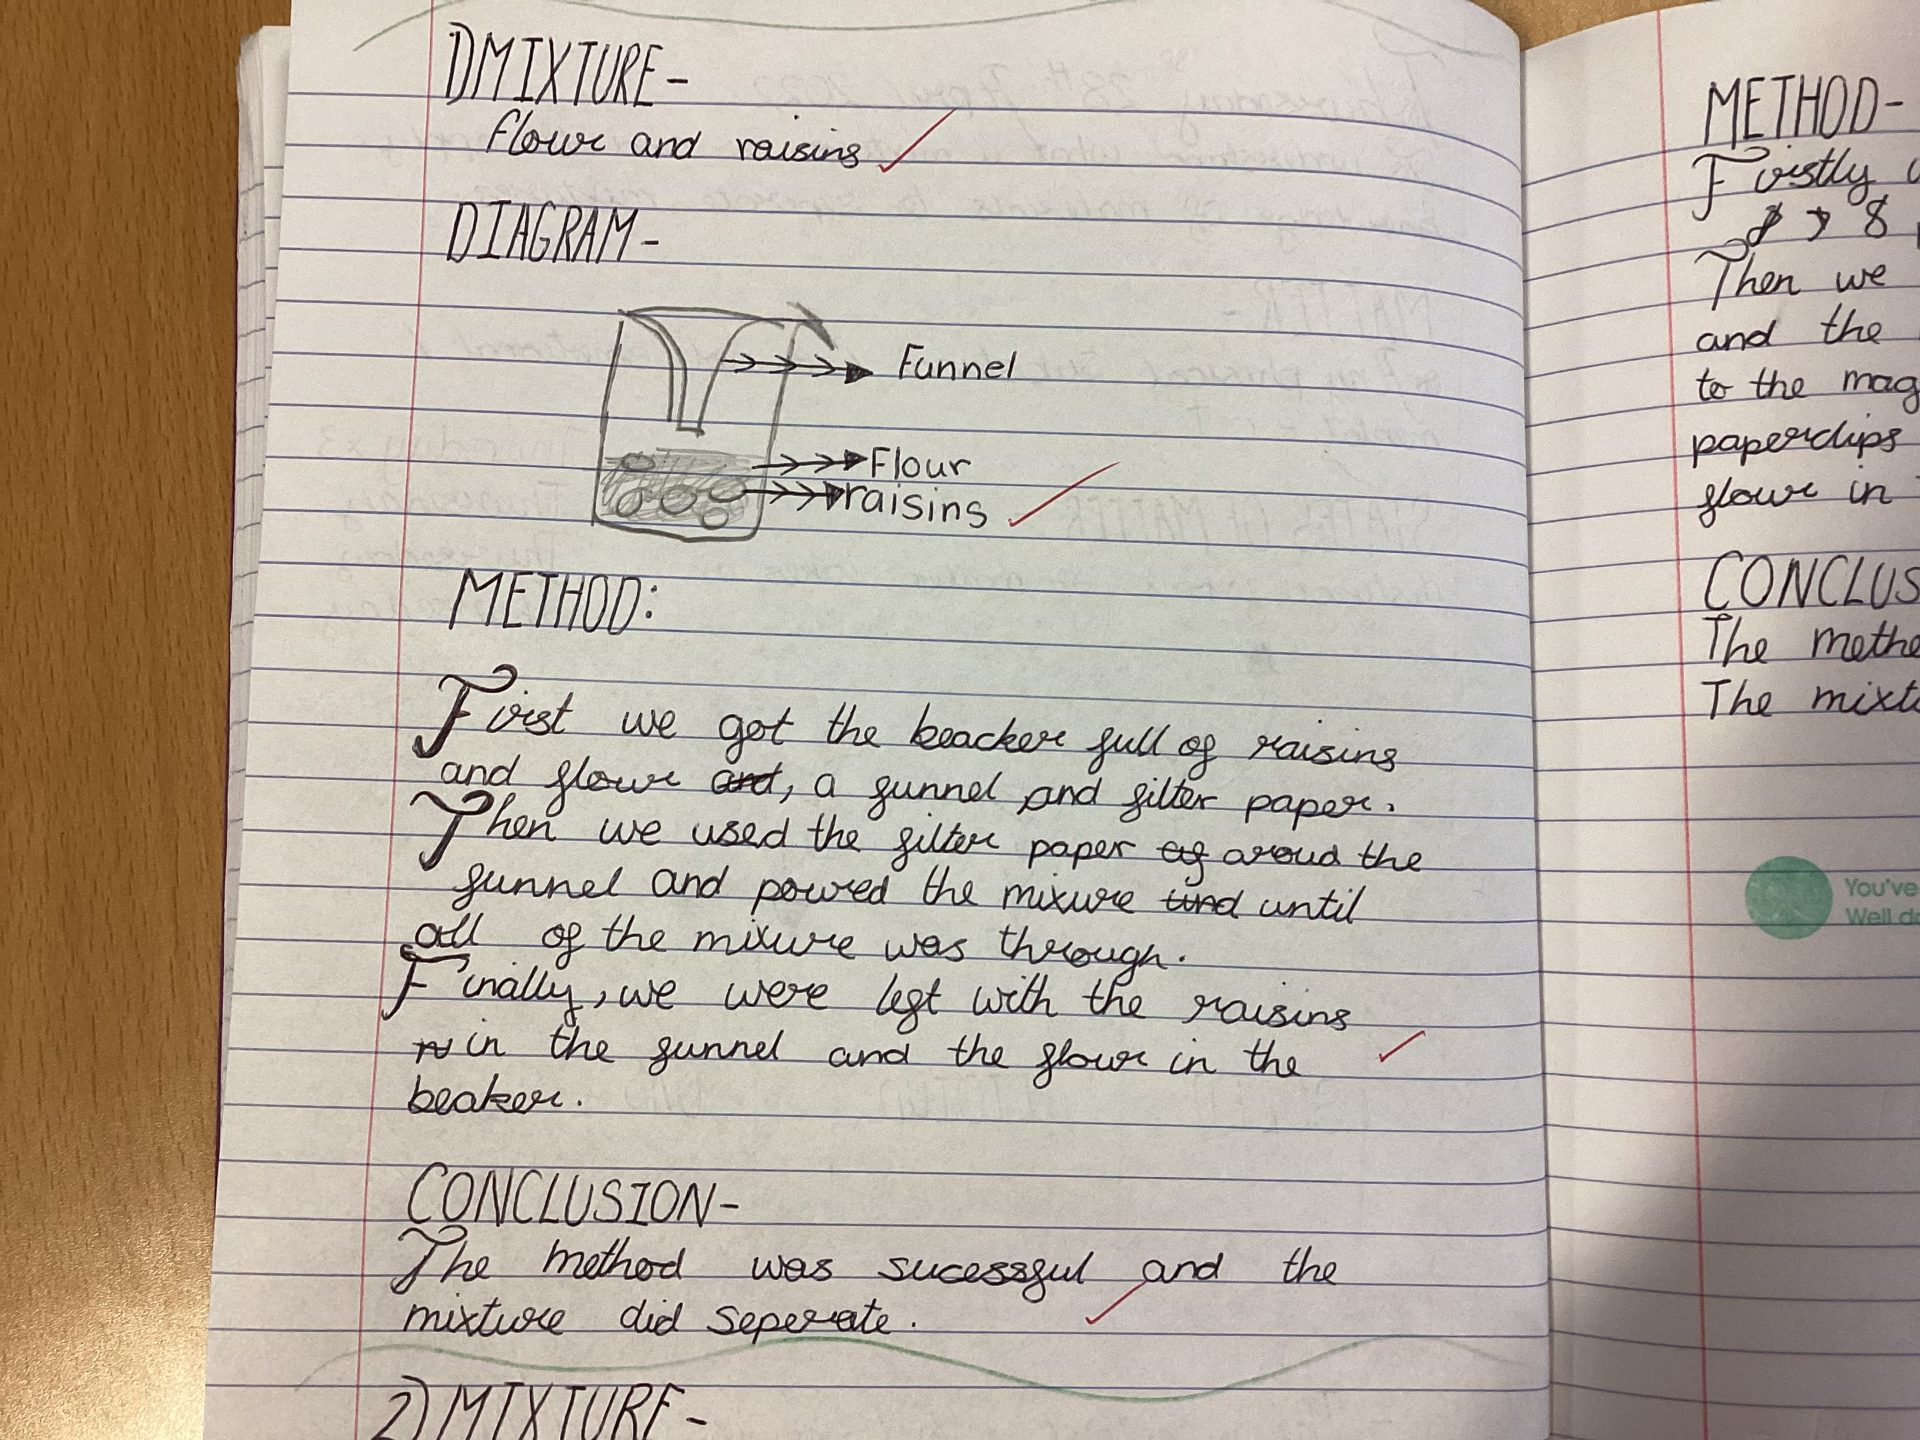 1)MIXTURE-
flour and raisins
DIAGRAM-
Funnel
Flour
raisins
METHOD:
First we got the beacker full of raisins
and flour and, a funnel and filter paper.
Then we used the filter paper of aroud the
funnel and poured the mixure und until
all of the mixure was through.
Finally, we were left with the raisins
in the funnel and the flour in the
beaker.
CONCLUSION-
The method was sucessful and the
mixture did seperate.
2) MIXTURE-
METHOD-
Firstly
8
Then we
and the
to the mag
paperclips
flour in
CONCLUS
The metho
The mixtu
You've
Well do